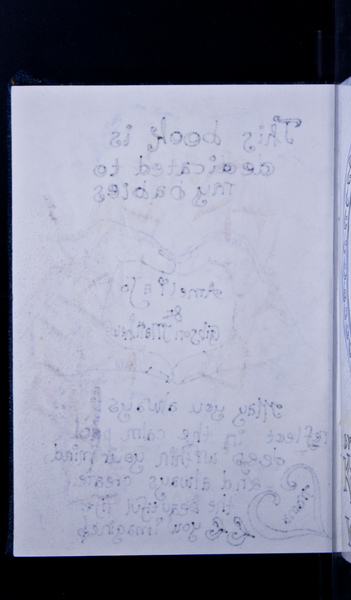 This book is
dedicated to
my babies
&
Gibson
May you always
reflect in the calm pool
deep within your mind,
and always create
the beautiful life
you imagine